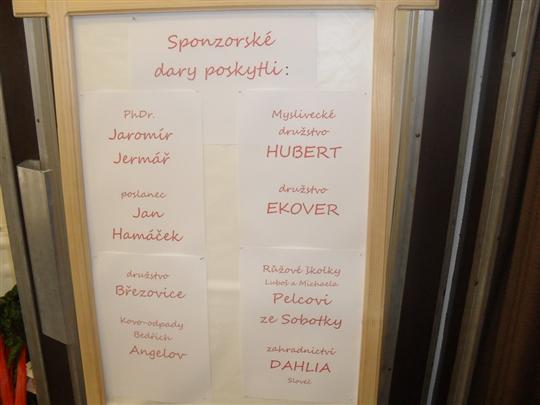 Sponzorské
dary poskytli:
PhDr.
Jaromír
Jermář
poslanec
Jan
Hamáček
družstvo
Březovice
Kovo-odpady
Bedřich
Angelov
Myslivecké
družstvo
HUBERT
družstvo
EKOVER
Růžové školky
Luboš a Michaela
Pelcovi
ze Sobotky
zahradnictví
DAHLIA
Sloveč